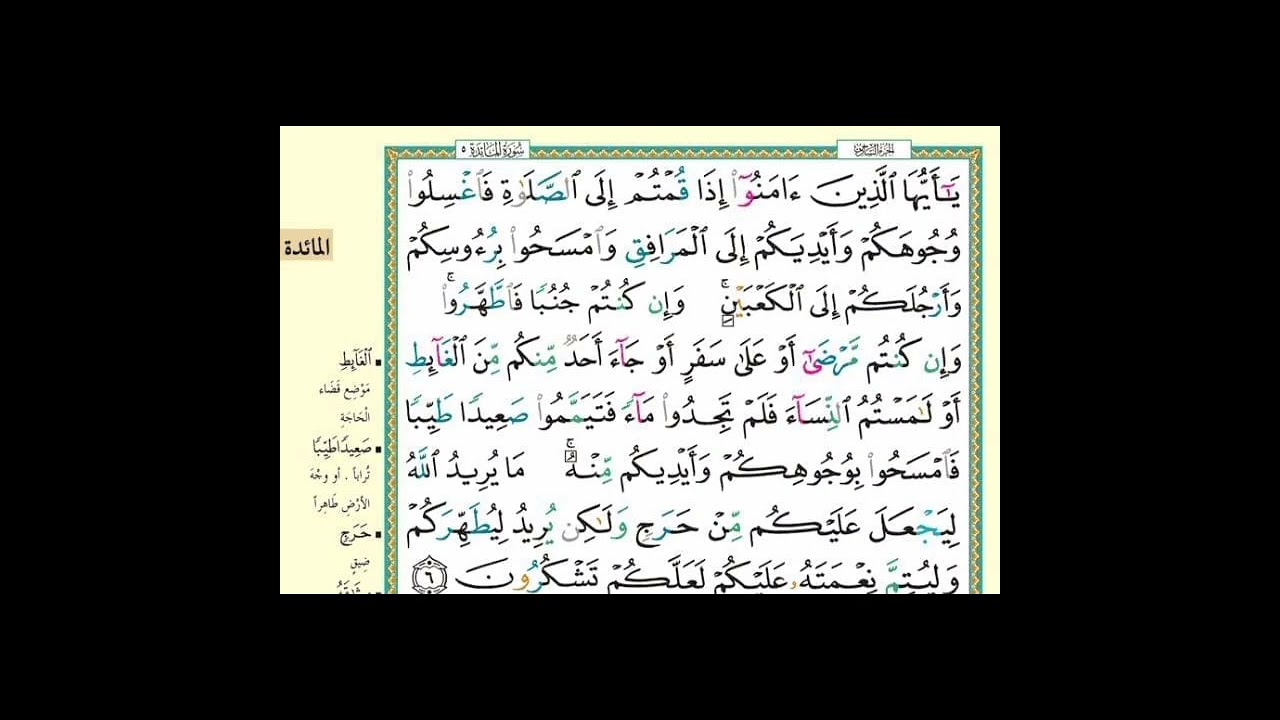 الجزء السادس
سورة المائدة ٥
يَـٰٓأَيُّهَا ٱلَّذِينَ ءَامَنُوٓا۟ إِذَا قُمْتُمْ إِلَى ٱلصَّلَوٰةِ فَٱغْسِلُوا۟
وُجُوهَكُمْ وَأَيْدِيَكُمْ إِلَى ٱلْمَرَافِقِ وَٱمْسَحُوا۟ بِرُءُوسِكُمْ
وَأَرْجُلَكُمْ إِلَى ٱلْكَعْبَيْنِ ۚ وَإِن كُنتُمْ جُنُبًا فَٱطَّهَّرُوا۟ ۚ
وَإِن كُنتُم مَّرْضَىٰٓ أَوْ عَلَىٰ سَفَرٍ أَوْ جَآءَ أَحَدٌ مِّنكُم مِّنَ ٱلْغَآئِطِ
أَوْ لَـٰمَسْتُمُ ٱلنِّسَآءَ فَلَمْ تَجِدُوا۟ مَآءً فَتَيَمَّمُوا۟ صَعِيدًا طَيِّبًا
فَٱمْسَحُوا۟ بِوُجُوهِكُمْ وَأَيْدِيكُم مِّنْهُ ۚ مَا يُرِيدُ ٱللَّهُ
لِيَجْعَلَ عَلَيْكُم مِّنْ حَرَجٍ وَلَـٰكِن يُرِيدُ لِيُطَهِّرَكُمْ
وَلِيُتِمَّ نِعْمَتَهُۥ عَلَيْكُمْ لَعَلَّكُمْ تَشْكُرُونَ ٦
المائدة
ٱلْغَآئِطِ
مَوْضِعِ قَضَاء
الْحَاجَةِ
صَعِيدًا طَيِّبًا
تُرَاباً . أو وَجْهَ
الأَرْضِ طَاهِراً
حَرَجٍ
ضِيقٍ